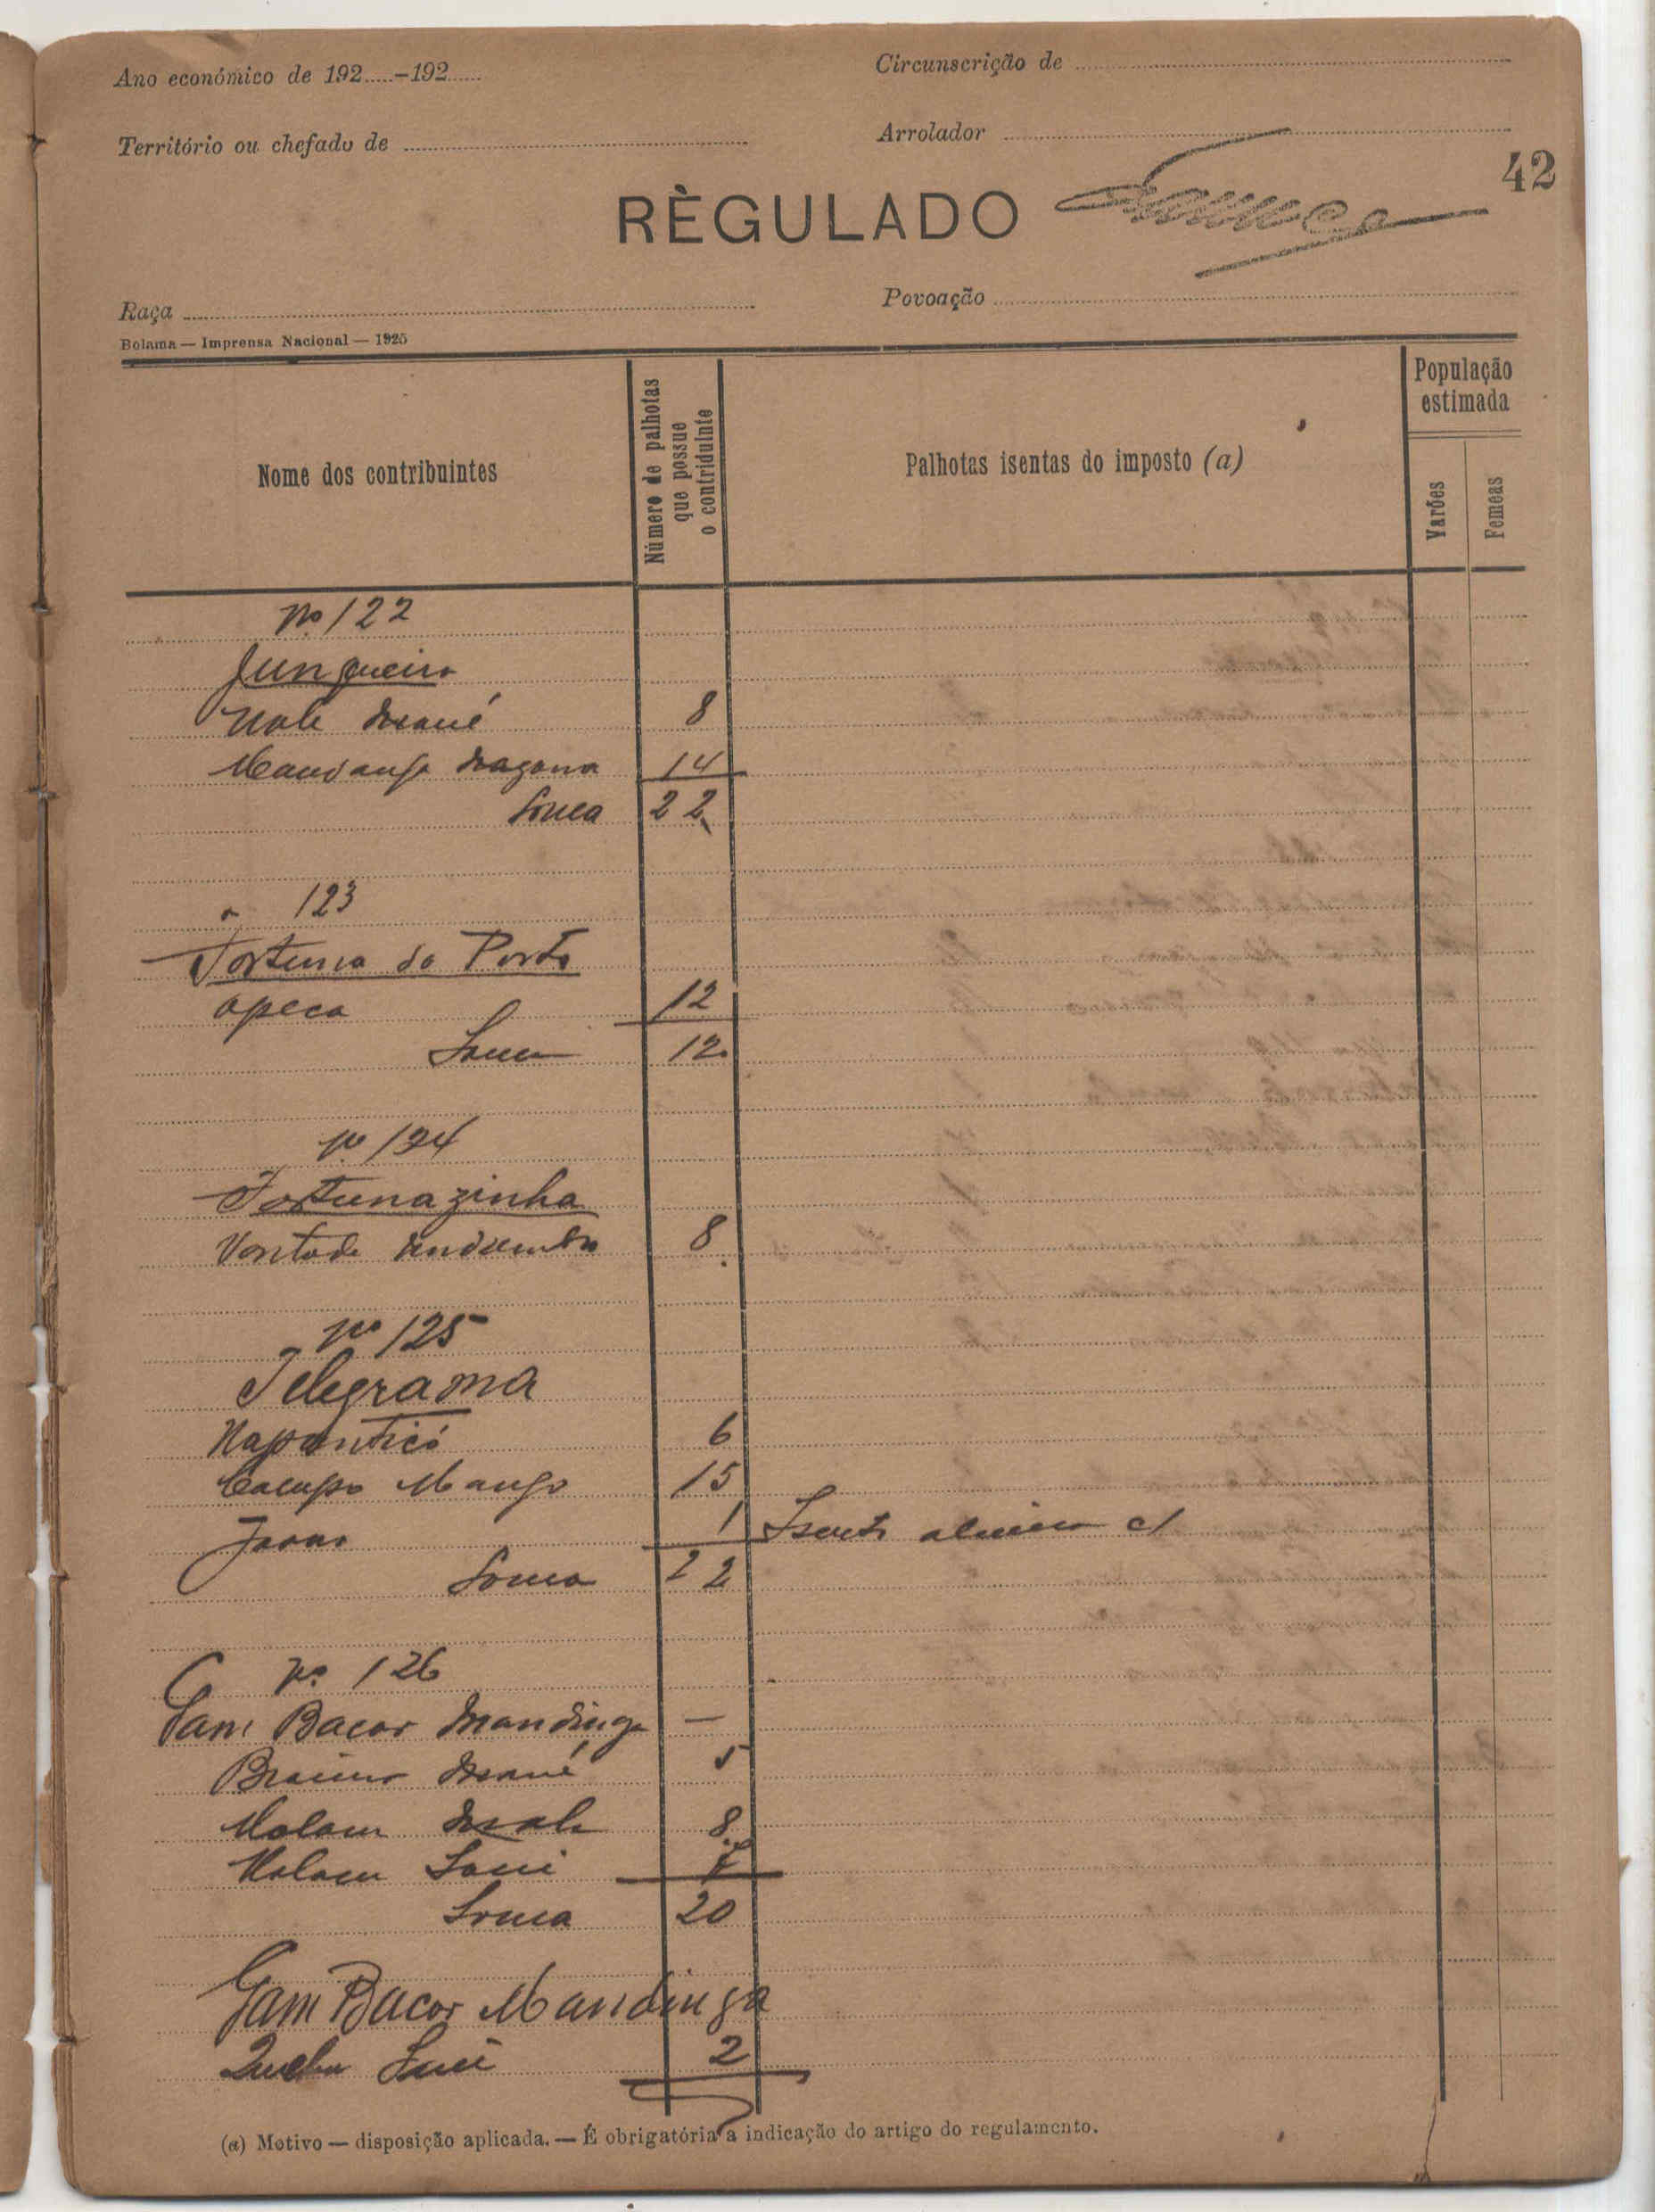 Ano económico de 192.....-192......
Circunscrição de
Território ou chefado de
Arrolador
42
RÈGULADO
Raça
Povoação
Bolama — Imprensa Nacional — 1925
Nome dos contribuintes
Número de palhotas que possue o contriduinte
Palhotas isentas do imposto (a)
População estimada
Varões
Femeas
Nº 122
Junqueiro
8
14
Soma 22
" 123
Fortuna do Porto
apeca 12
Soma 12
Nº 124
Fortunazinha
Vontade 8
Nº 125
Telegrama
6
15
1 Isento
Soma 22
Nº 126
Gam Bacar Mandinga —
Braima Mané 5
Malam 8
Malam 7
Soma 20
Gam Bacar Mandinga
2
(a) Motivo — disposição aplicada. — É obrigatória a indicação do artigo do regulamento.